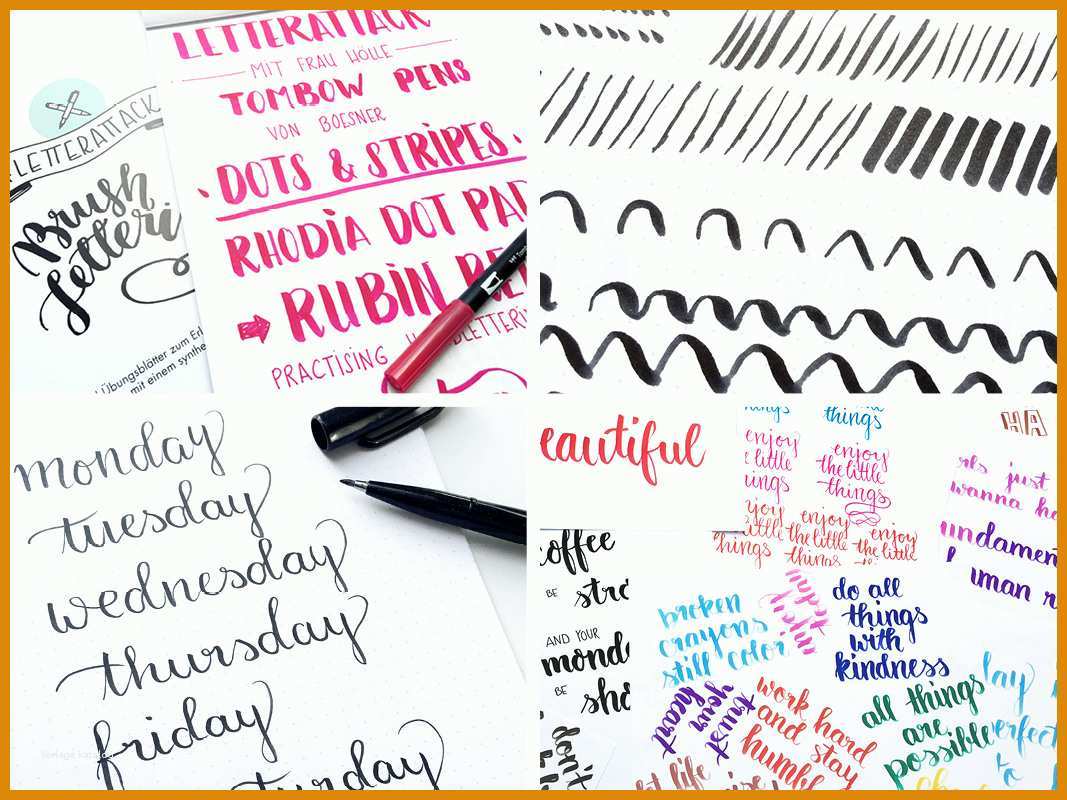 LETTERATTACK
Brush
Lettering
Übungsblätter zum
mit einem
LETTERATTACK
MIT FRAU HÖLLE
TOMBOW PENS
VON BOESNER
DOTS & STRIPES
RHODIA DOT PAD
RUBIN
PRACTISING
monday
tuesday
wednesday
thursday
friday
turday
eautiful
things
enjoy
the little
things
enjoy
the little
things
enjoy
the little
things
enjoy
the little
HA
just
wanna
undamen
uman r
offee
BE
AND YOUR
mond
BE
don't
broken
crayons
still color
do all
things
with
kindness
trust
your
heart
work hard
and stay
humble
all things
are
possible
lay
erfect
life